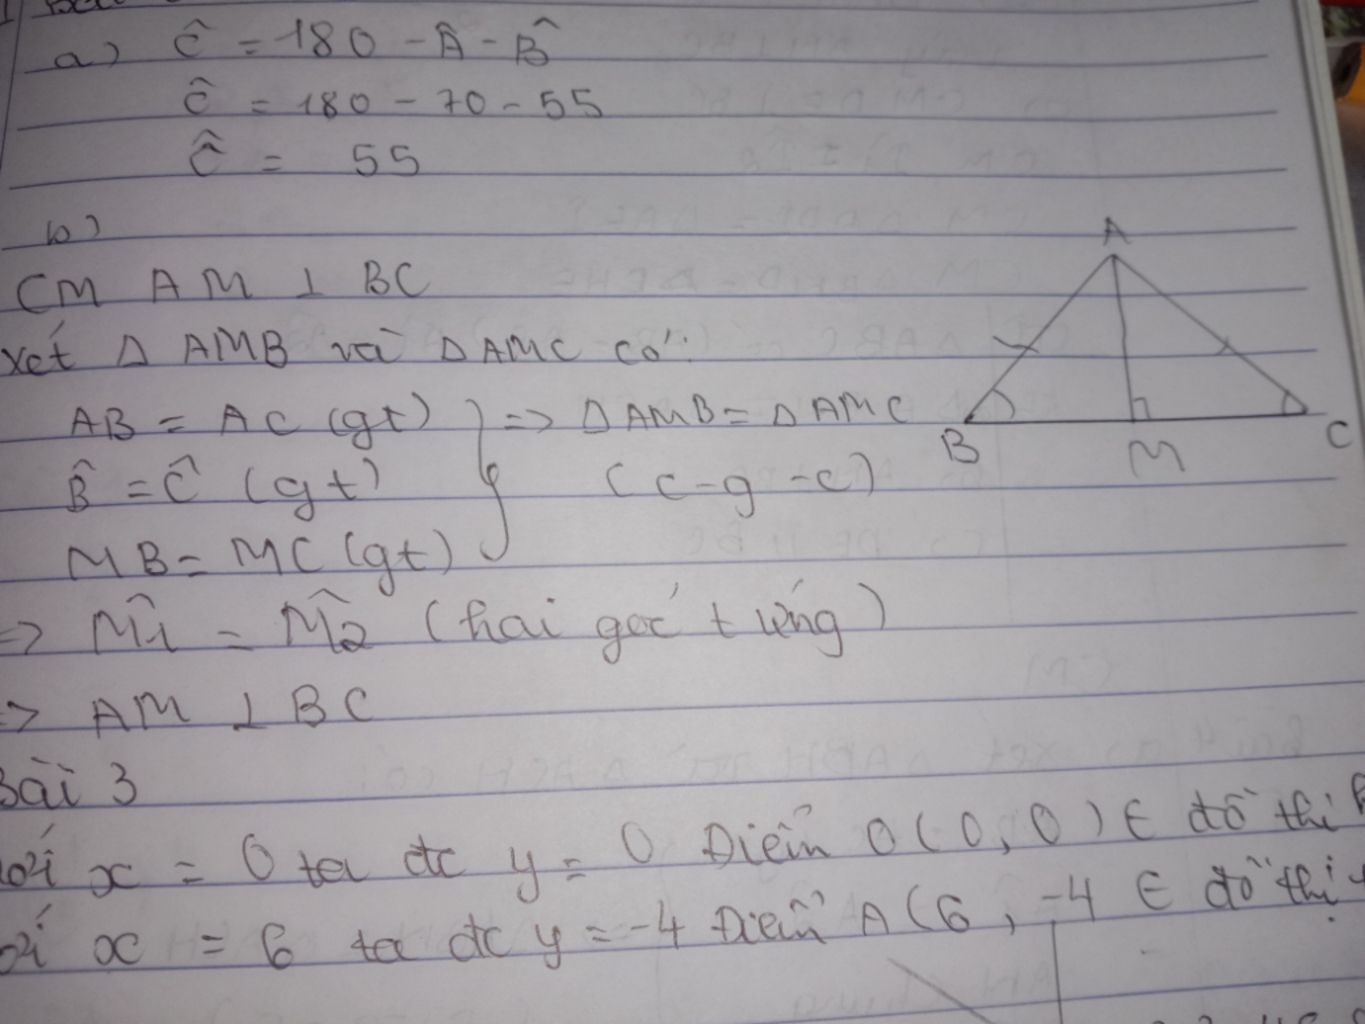 a) Ĉ = 180 - Â - B̂
Ĉ = 180 - 70 - 55
Ĉ = 55
b)
CM AM ⊥ BC
xét Δ AMB và Δ AMC có:
AB = AC (gt) } => Δ AMB = Δ AMC
B̂ = Ĉ (gt) (c-g-c)
MB = MC (gt)
=> M̂1 = M̂2 (hai góc t ứng)
=> AM ⊥ BC
A
B
M
C
Bài 3
với x = 0 ta đc y = 0 Điểm O(0, 0) ∈ đồ thị
với x = 6 ta đc y = -4 Điểm A(6, -4 ∈ đồ thị